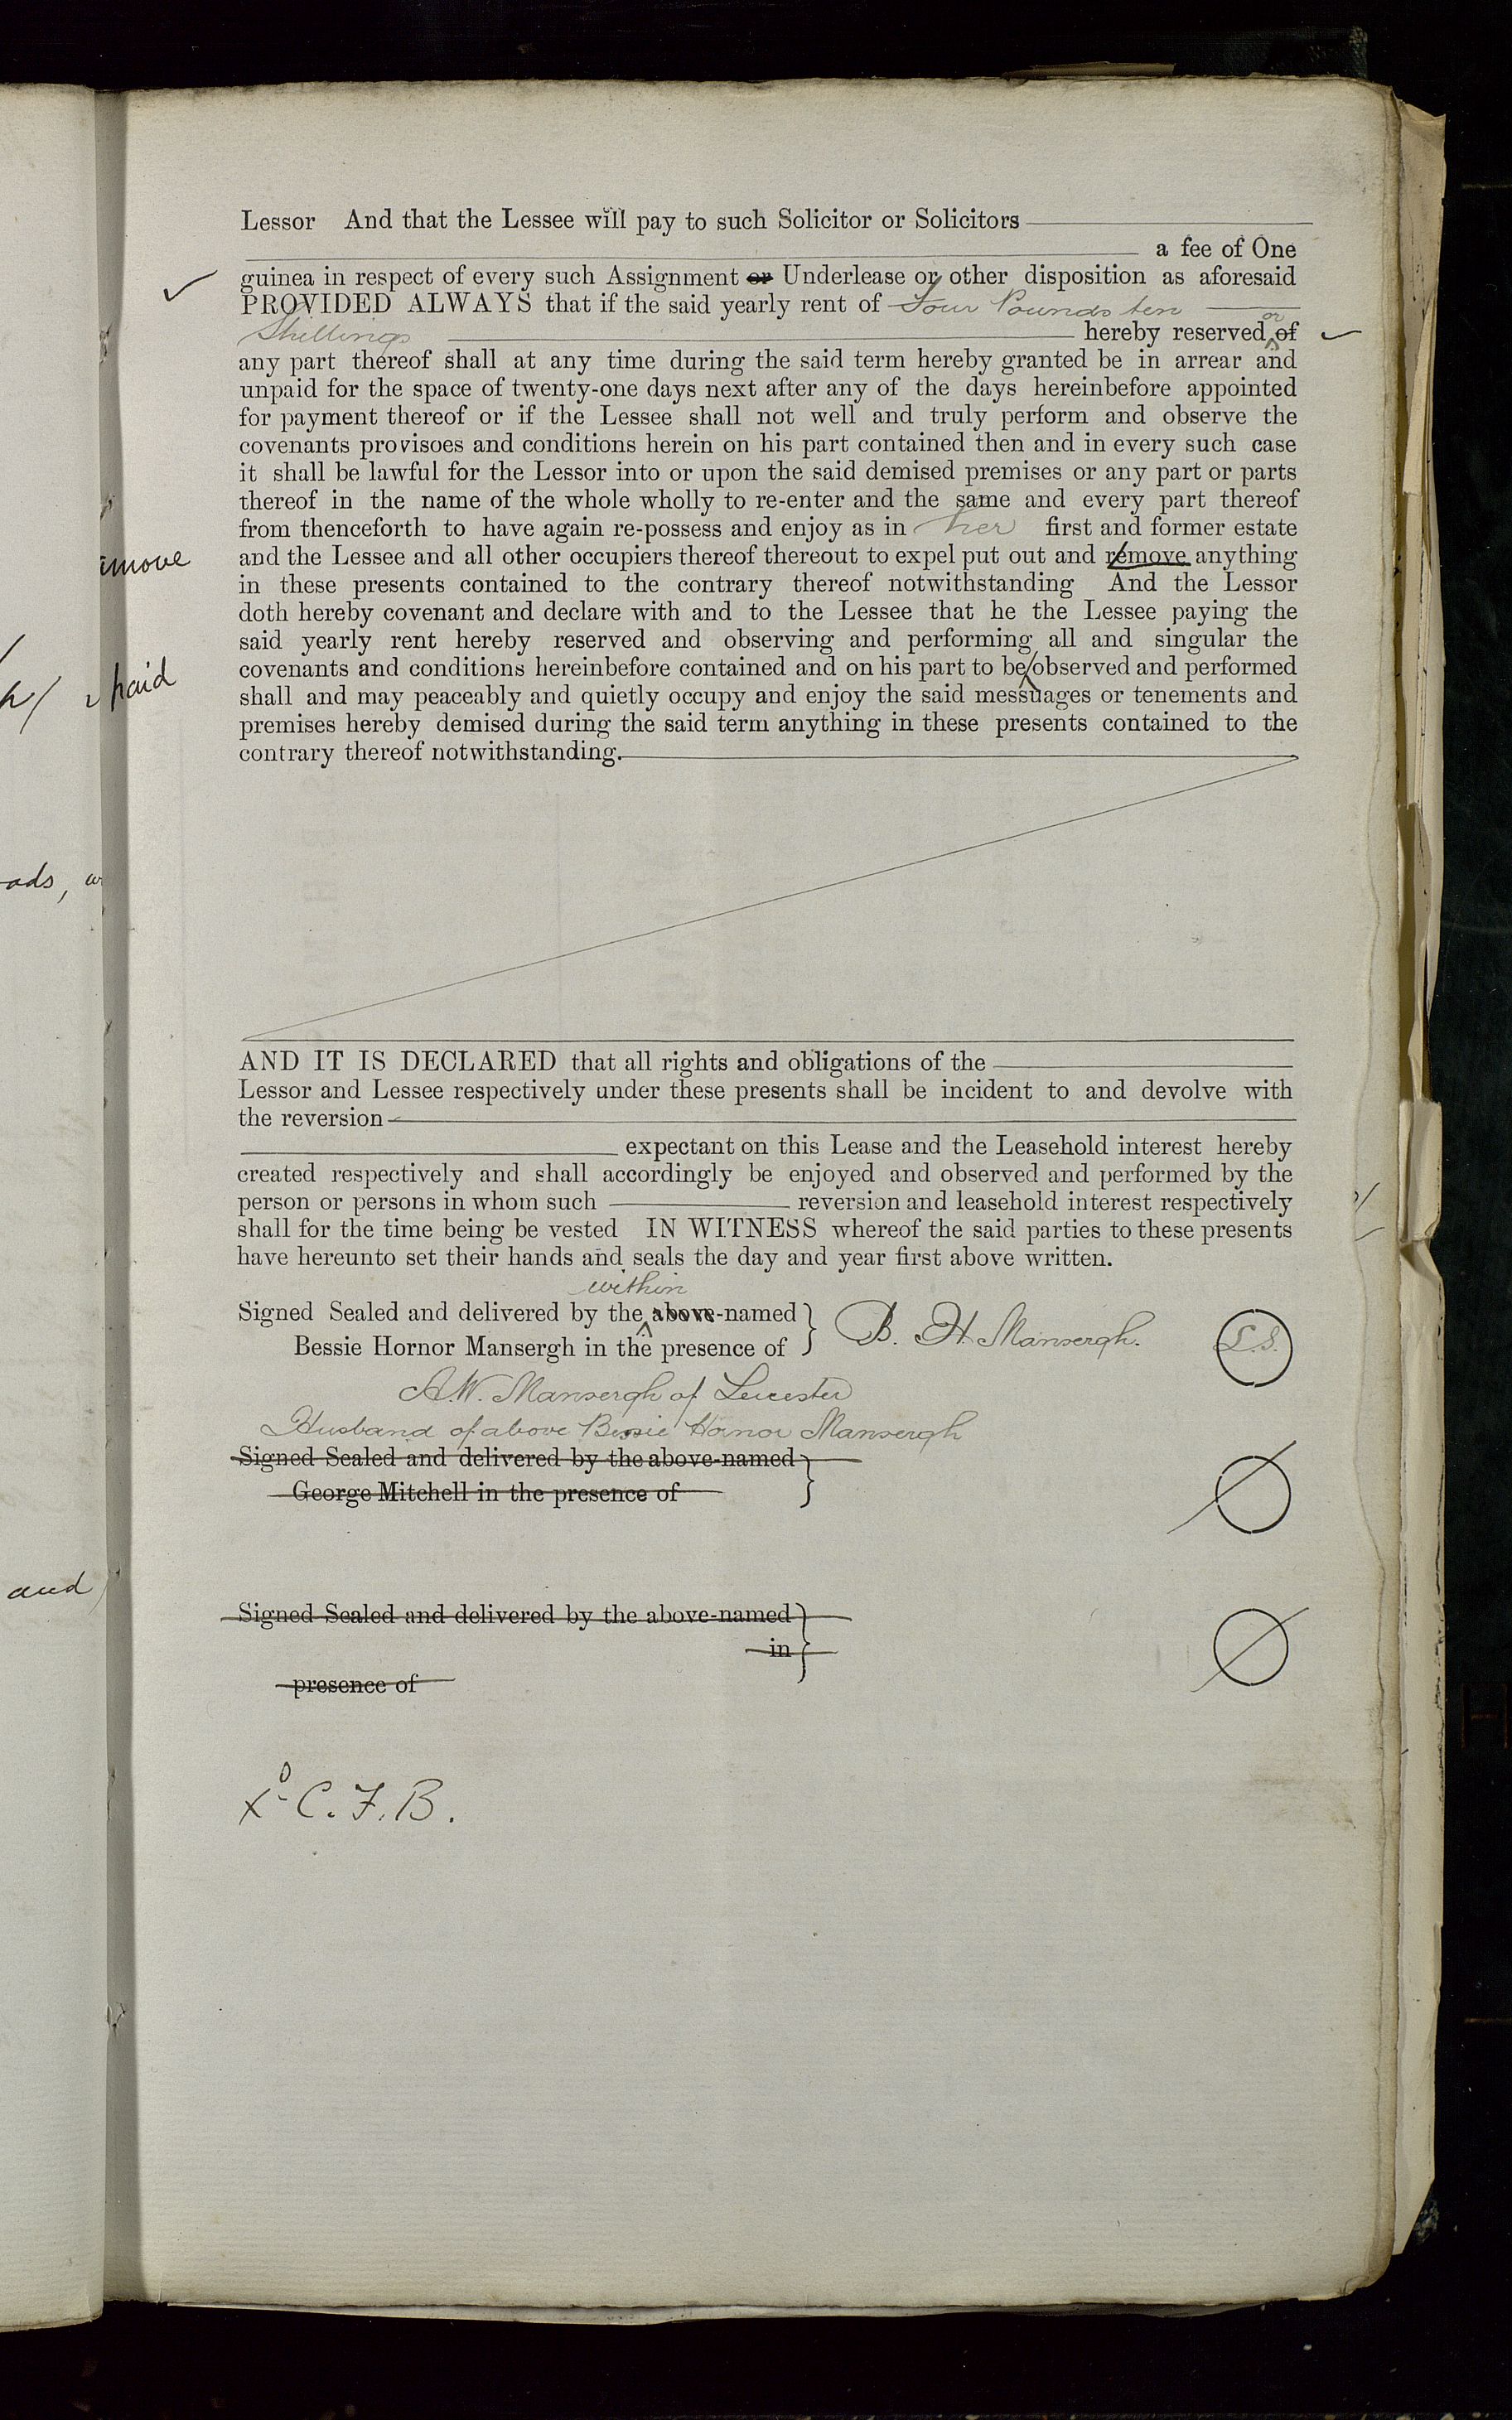 Lessor And that the Lessee will pay to such Solicitor or Solicitors
a fee of One
guinea in respect of every such Assignment or Underlease or other disposition as aforesaid
PROVIDED ALWAYS that if the said yearly rent of Four Pounds ten
or
Shillings hereby reserved of
any part thereof shall at any time during the said term hereby granted be in arrear and
unpaid for the space of twenty-one days next after any of the days hereinbefore appointed
for payment thereof or if the Lessee shall not well and truly perform and observe the
covenants provisoes and conditions herein on his part contained then and in every such case
it shall be lawful for the Lessor into or upon the said demised premises or any part or parts
thereof in the name of the whole wholly to re-enter and the same and every part thereof
from thenceforth to have again re-possess and enjoy as in her first and former estate
and the Lessee and all other occupiers thereof thereout to expel put out and remove anything
in these presents contained to the contrary thereof notwithstanding And the Lessor
doth hereby covenant and declare with and to the Lessee that he the Lessee paying the
said yearly rent hereby reserved and observing and performing all and singular the
covenants and conditions hereinbefore contained and on his part to be observed and performed
shall and may peaceably and quietly occupy and enjoy the said messuages or tenements and
premises hereby demised during the said term anything in these presents contained to the
contrary thereof notwithstanding.
AND IT IS DECLARED that all rights and obligations of the
Lessor and Lessee respectively under these presents shall be incident to and devolve with
the reversion
expectant on this Lease and the Leasehold interest hereby
created respectively and shall accordingly be enjoyed and observed and performed by the
person or persons in whom such reversion and leasehold interest respectively
shall for the time being be vested IN WITNESS whereof the said parties to these presents
have hereunto set their hands and seals the day and year first above written.
within
Signed Sealed and delivered by the above-named
Bessie Hornor Mansergh in the presence of
B. H. Mansergh.
L.S.
A.W. Mansergh of Leicester
Husband of above Bessie Hornor Mansergh
Signed Sealed and delivered by the above-named
George Mitchell in the presence of
Signed Sealed and delivered by the above-named
in
presence of
C. F. B.
paid
and